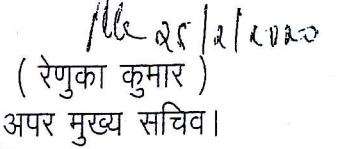 25/2/2020
( रेणुका कुमार )
अपर मुख्य सचिव।